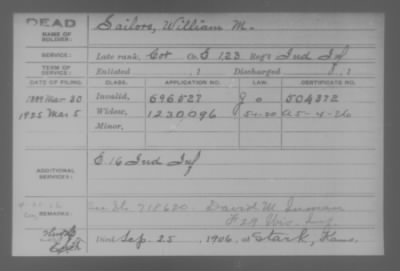 DEAD
NAME OF SOLDIER: Sailors, William M.
SERVICE: Late rank, Cor Co. G 123 Reg't Ind Inf
TERM OF SERVICE: Enlisted , 1 Discharged , 1
DATE OF FILING. CLASS. APPLICATION NO. LAW. CERTIFICATE NO.
1889 Mar 30 Invalid, 696527 G o 504372
1925 Mar 5 Widow, 1230096 A5-4-26
Minor,
ADDITIONAL SERVICES: E. 16 Ind Inf
718680 David M. Inman
F 29 Wis. Inf
Died Sep. 25, 1906, at Stark, Kans.